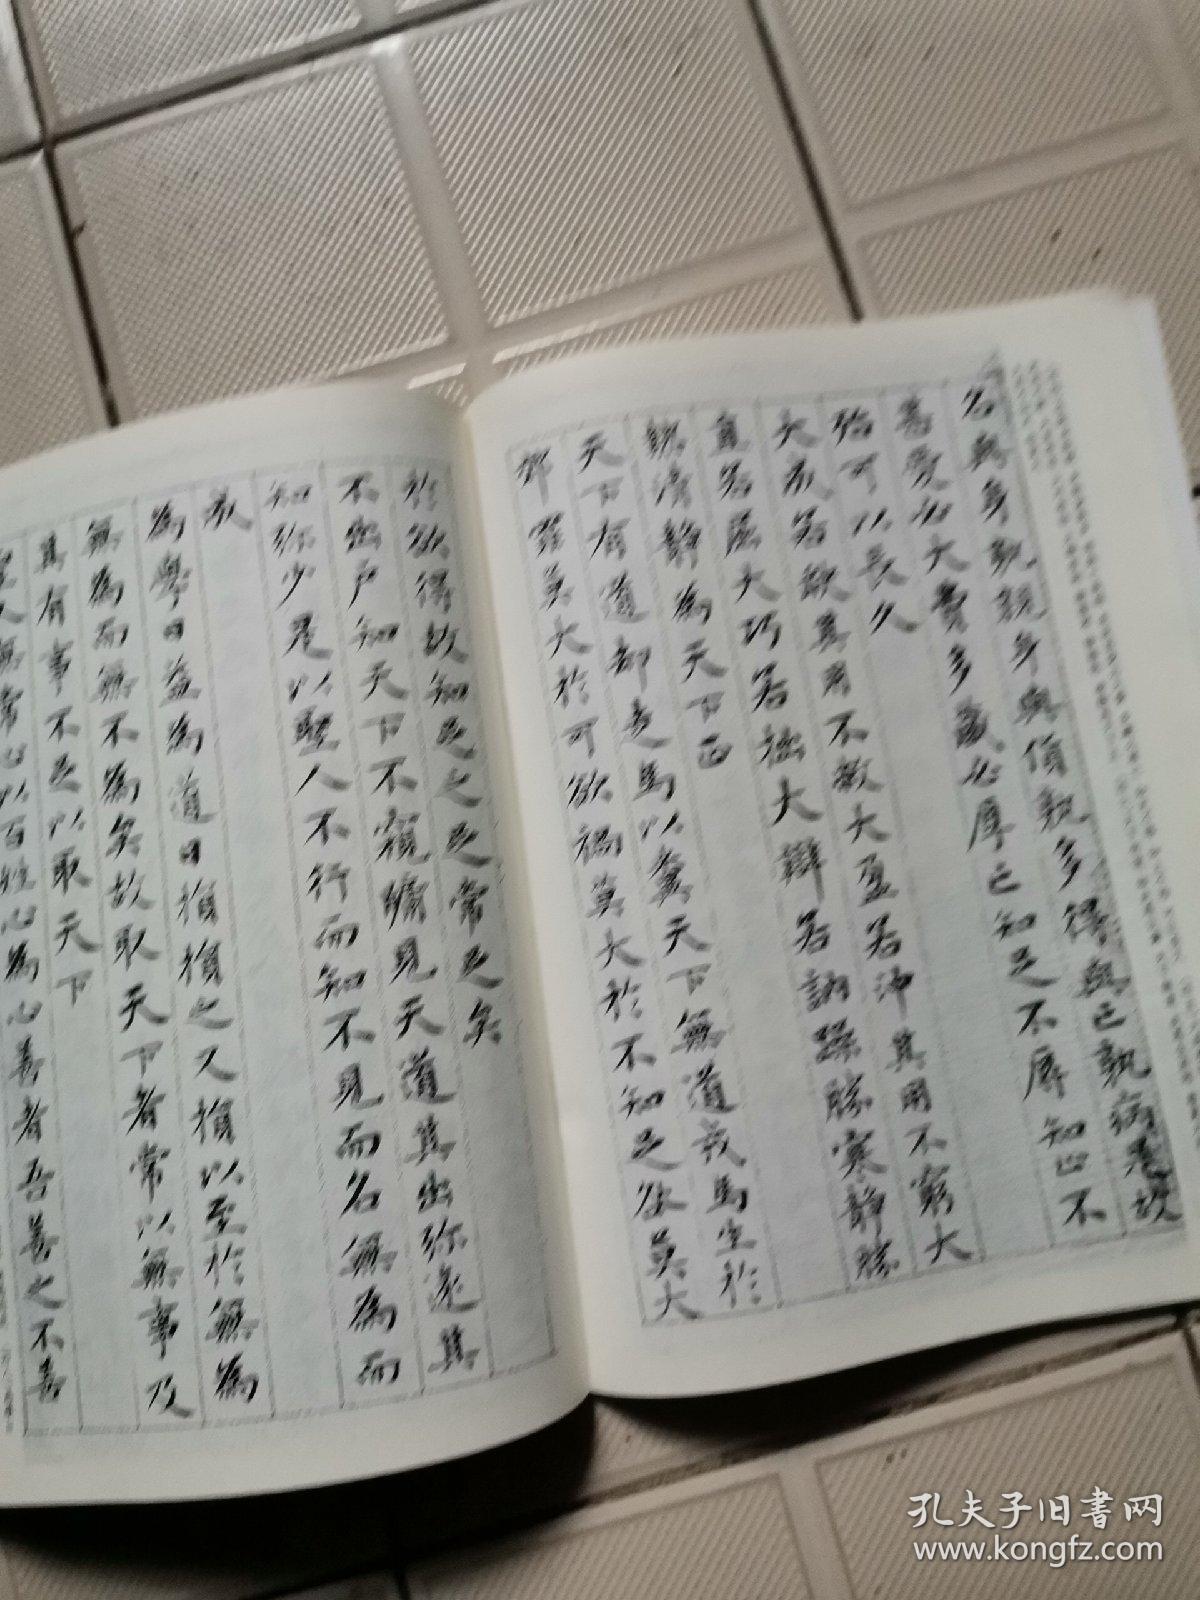 名與身孰親身與貨孰多得與亡孰病是故
甚愛必大費多藏必厚亡知足不辱知止不
殆可以長久
大成若缺其用不敝大盈若沖其用不窮大
直若屈大巧若拙大辯若訥躁勝寒靜勝
熱清靜為天下正
天下有道却走馬以糞天下無道戎馬生於
郊罪莫大於可欲禍莫大於不知足咎莫大
於欲得故知足之足常足矣
不出戶知天下不窺牖見天道其出彌遠其
知彌少是以聖人不行而知不見而名無為而
成
為學日益為道日損損之又損以至於無為
無為而無不為矣故取天下者常以無事及
其有事不足以取天下
聖人無常心以百姓心為心善者吾善之不善
孔夫子旧书网
www.kongfz.com